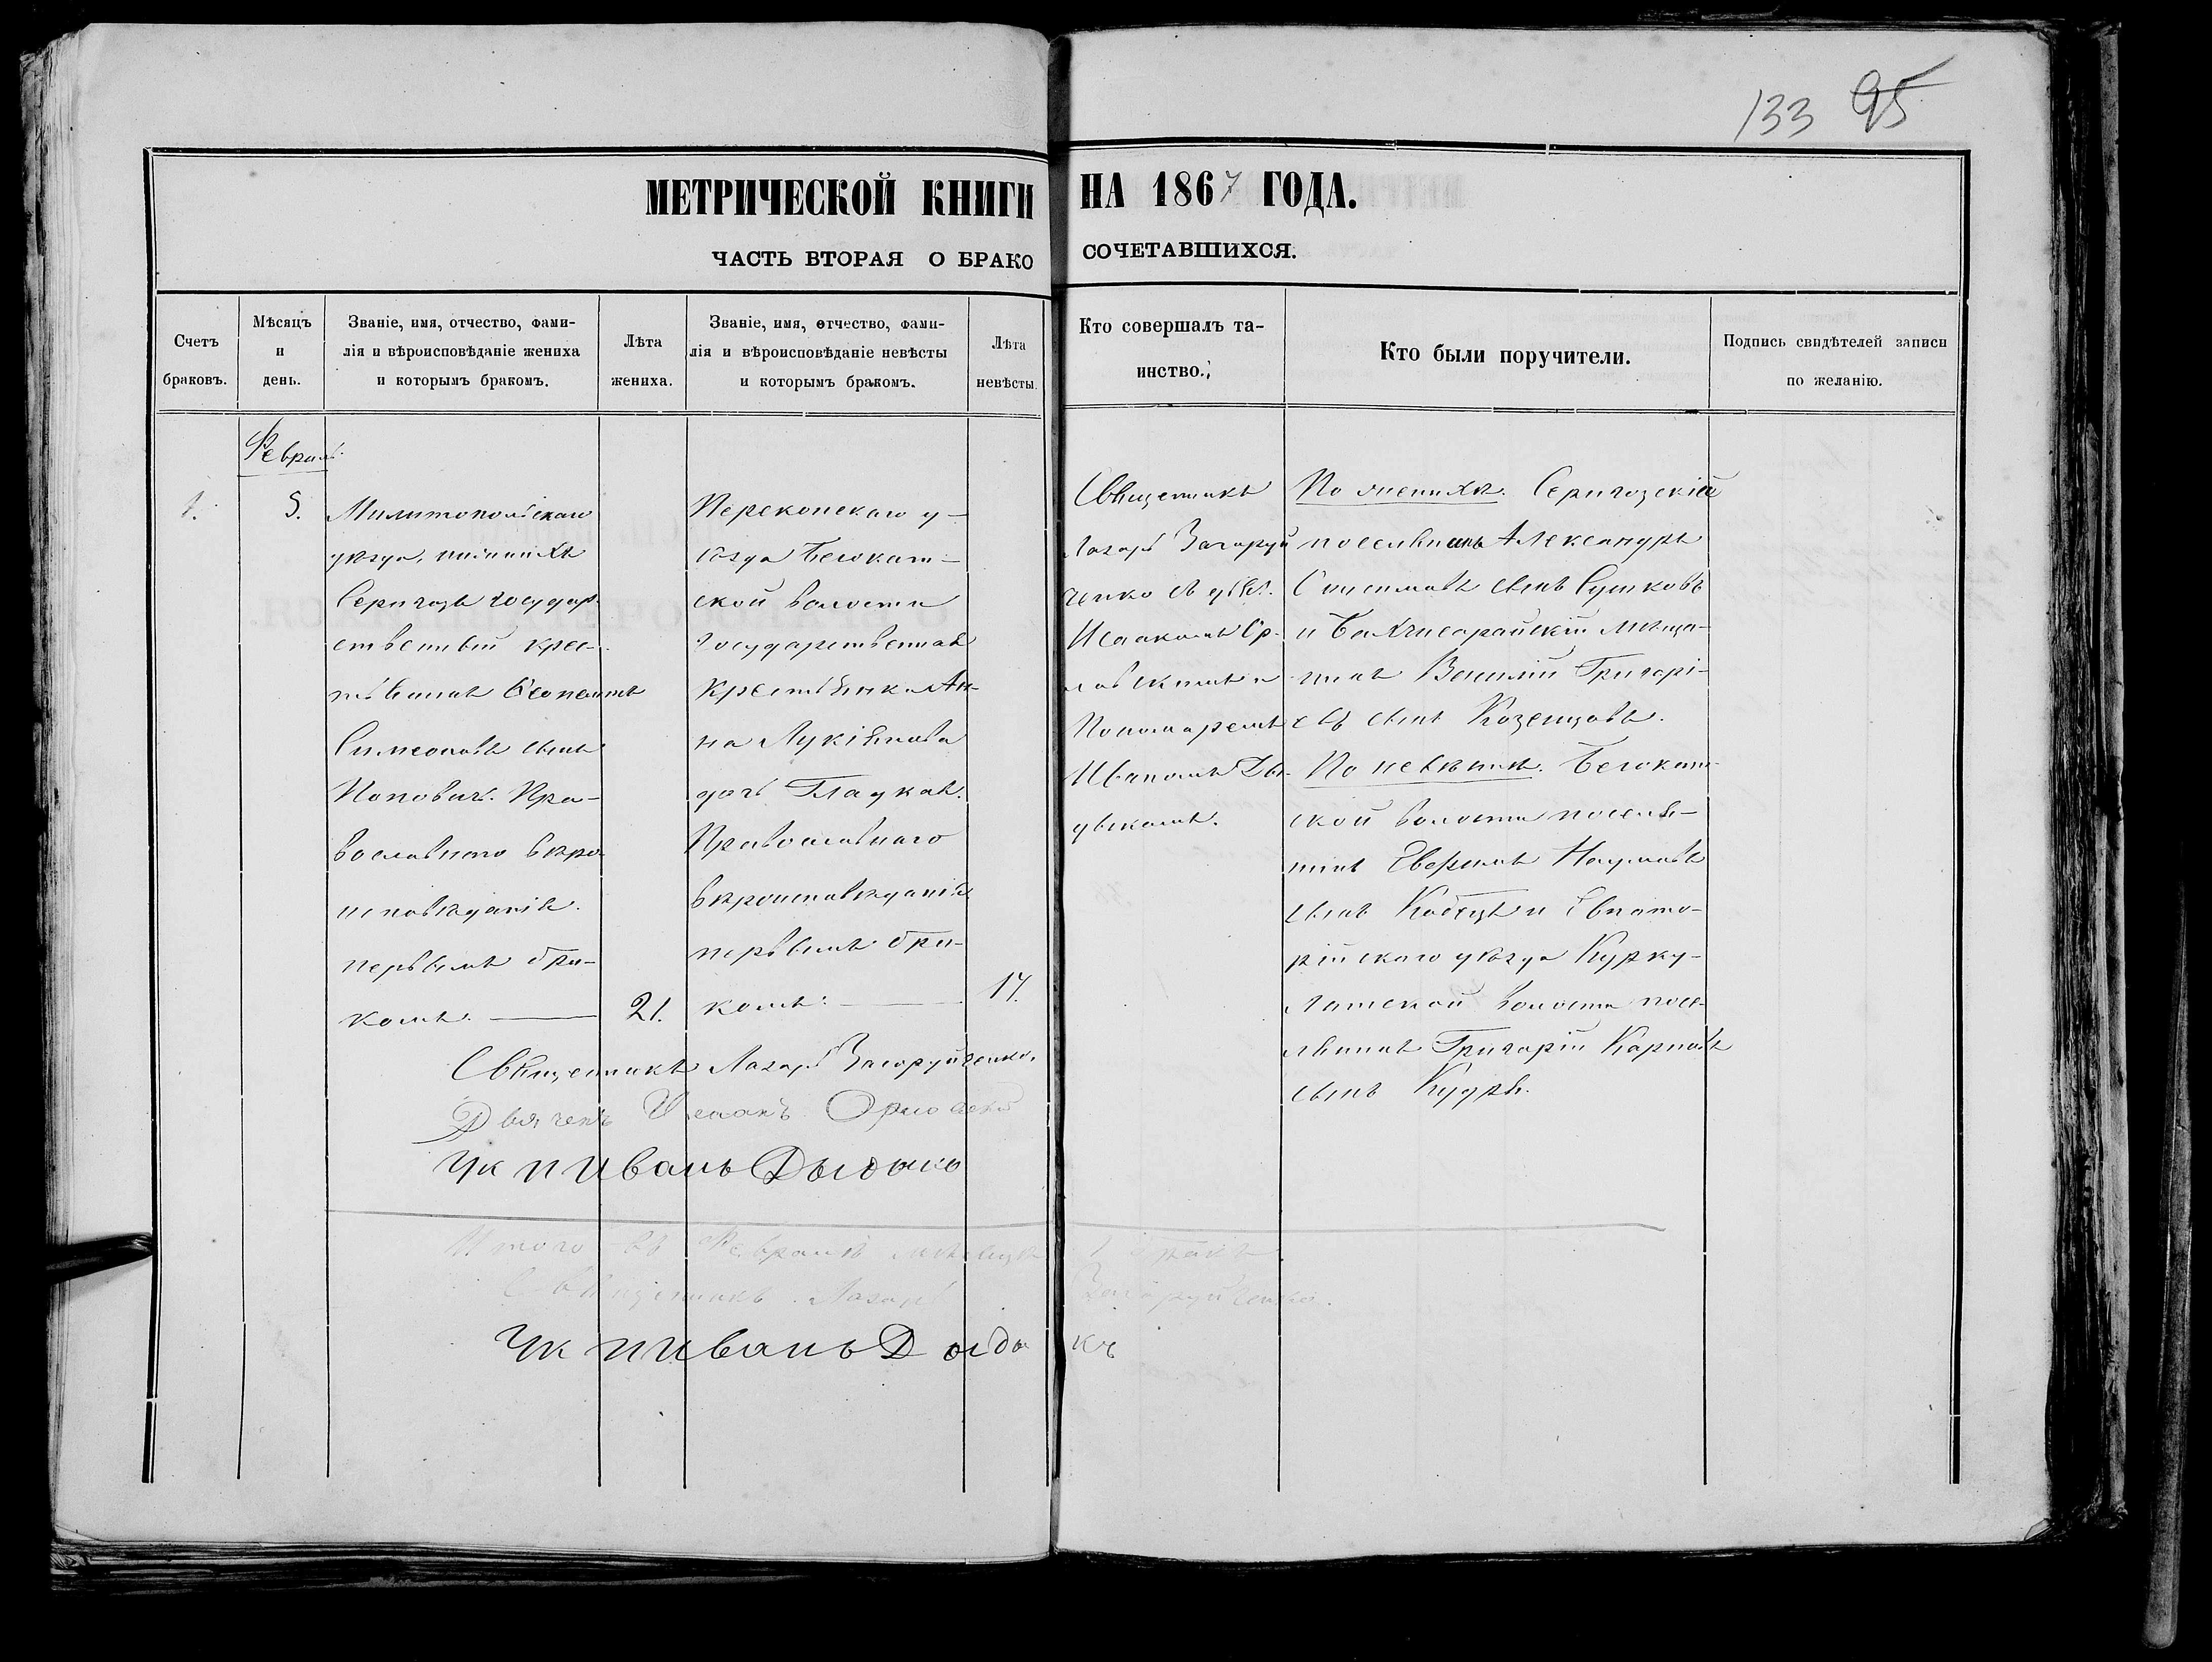 133 95
МЕТРИЧЕСКОЙ КНИГИ НА 1867 ГОДА.
ЧАСТЬ ВТОРАЯ О БРАКОСОЧЕТАВШИХСЯ.
Счетъ
браковъ.
Мѣсяцъ
и
день.
Званіе, имя, отчество, фами-
лія и вѣроисповѣданіе жениха
и которымъ бракомъ.
Лѣта
жениха.
Званіе, имя, отчество, фами-
лія и вѣроисповѣданіе невѣсты
и которымъ бракомъ.
Лѣта
невѣсты.
Кто совершалъ та-
инство.
Кто были поручители.
Подпись свидѣтелей записи
по желанію.
Февраль.
1.
5.
Милитопольскаго
уѣзда,
Серигозъ государ-
ственный крес-
тьянинъ
Симеоновъ сынъ
Поповичъ. Пра-
вославнаго вѣро-
исповѣданія.
первымъ бра-
комъ.
21.
Перекопскаго у-
ѣзда Бегокат-
ской волости
государственная
крестьянка Ан-
на Лукіянова
дочь Гладкая.
Православнаго
вѣроисповѣданія
первымъ бра-
комъ.
17.
Священникъ
Лазарь Загоруй
ченко съ дьяч.
Исаакомъ Ор-
ловскимъ и
Пономаремъ
Иваномъ Ды-
дыкомъ.
По женихѣ. Серигозскій
поселянинъ Александръ
сынъ Сушковъ
и Бахчисарайскій мѣща-
нинъ Василій Григорі-
евъ сынъ Козенцовъ.
По невѣстѣ. Бегокат-
ской волости поселя-
нинъ Наумовъ
сынъ и Евпато-
рійскаго уѣзда Курку-
латской волости посе-
лянинъ Григорій Карповъ
сынъ Кудря.
Священникъ Лазарь Загоруйченко.
Дьячекъ Исаакъ Орловскій
Ук П Иванъ Дыдыко
Итого въ Февралѣ мѣсяцѣ 1 бракъ
Священникъ Лазарь Загоруйченко.
Ук П Иванъ Дыдыкъ